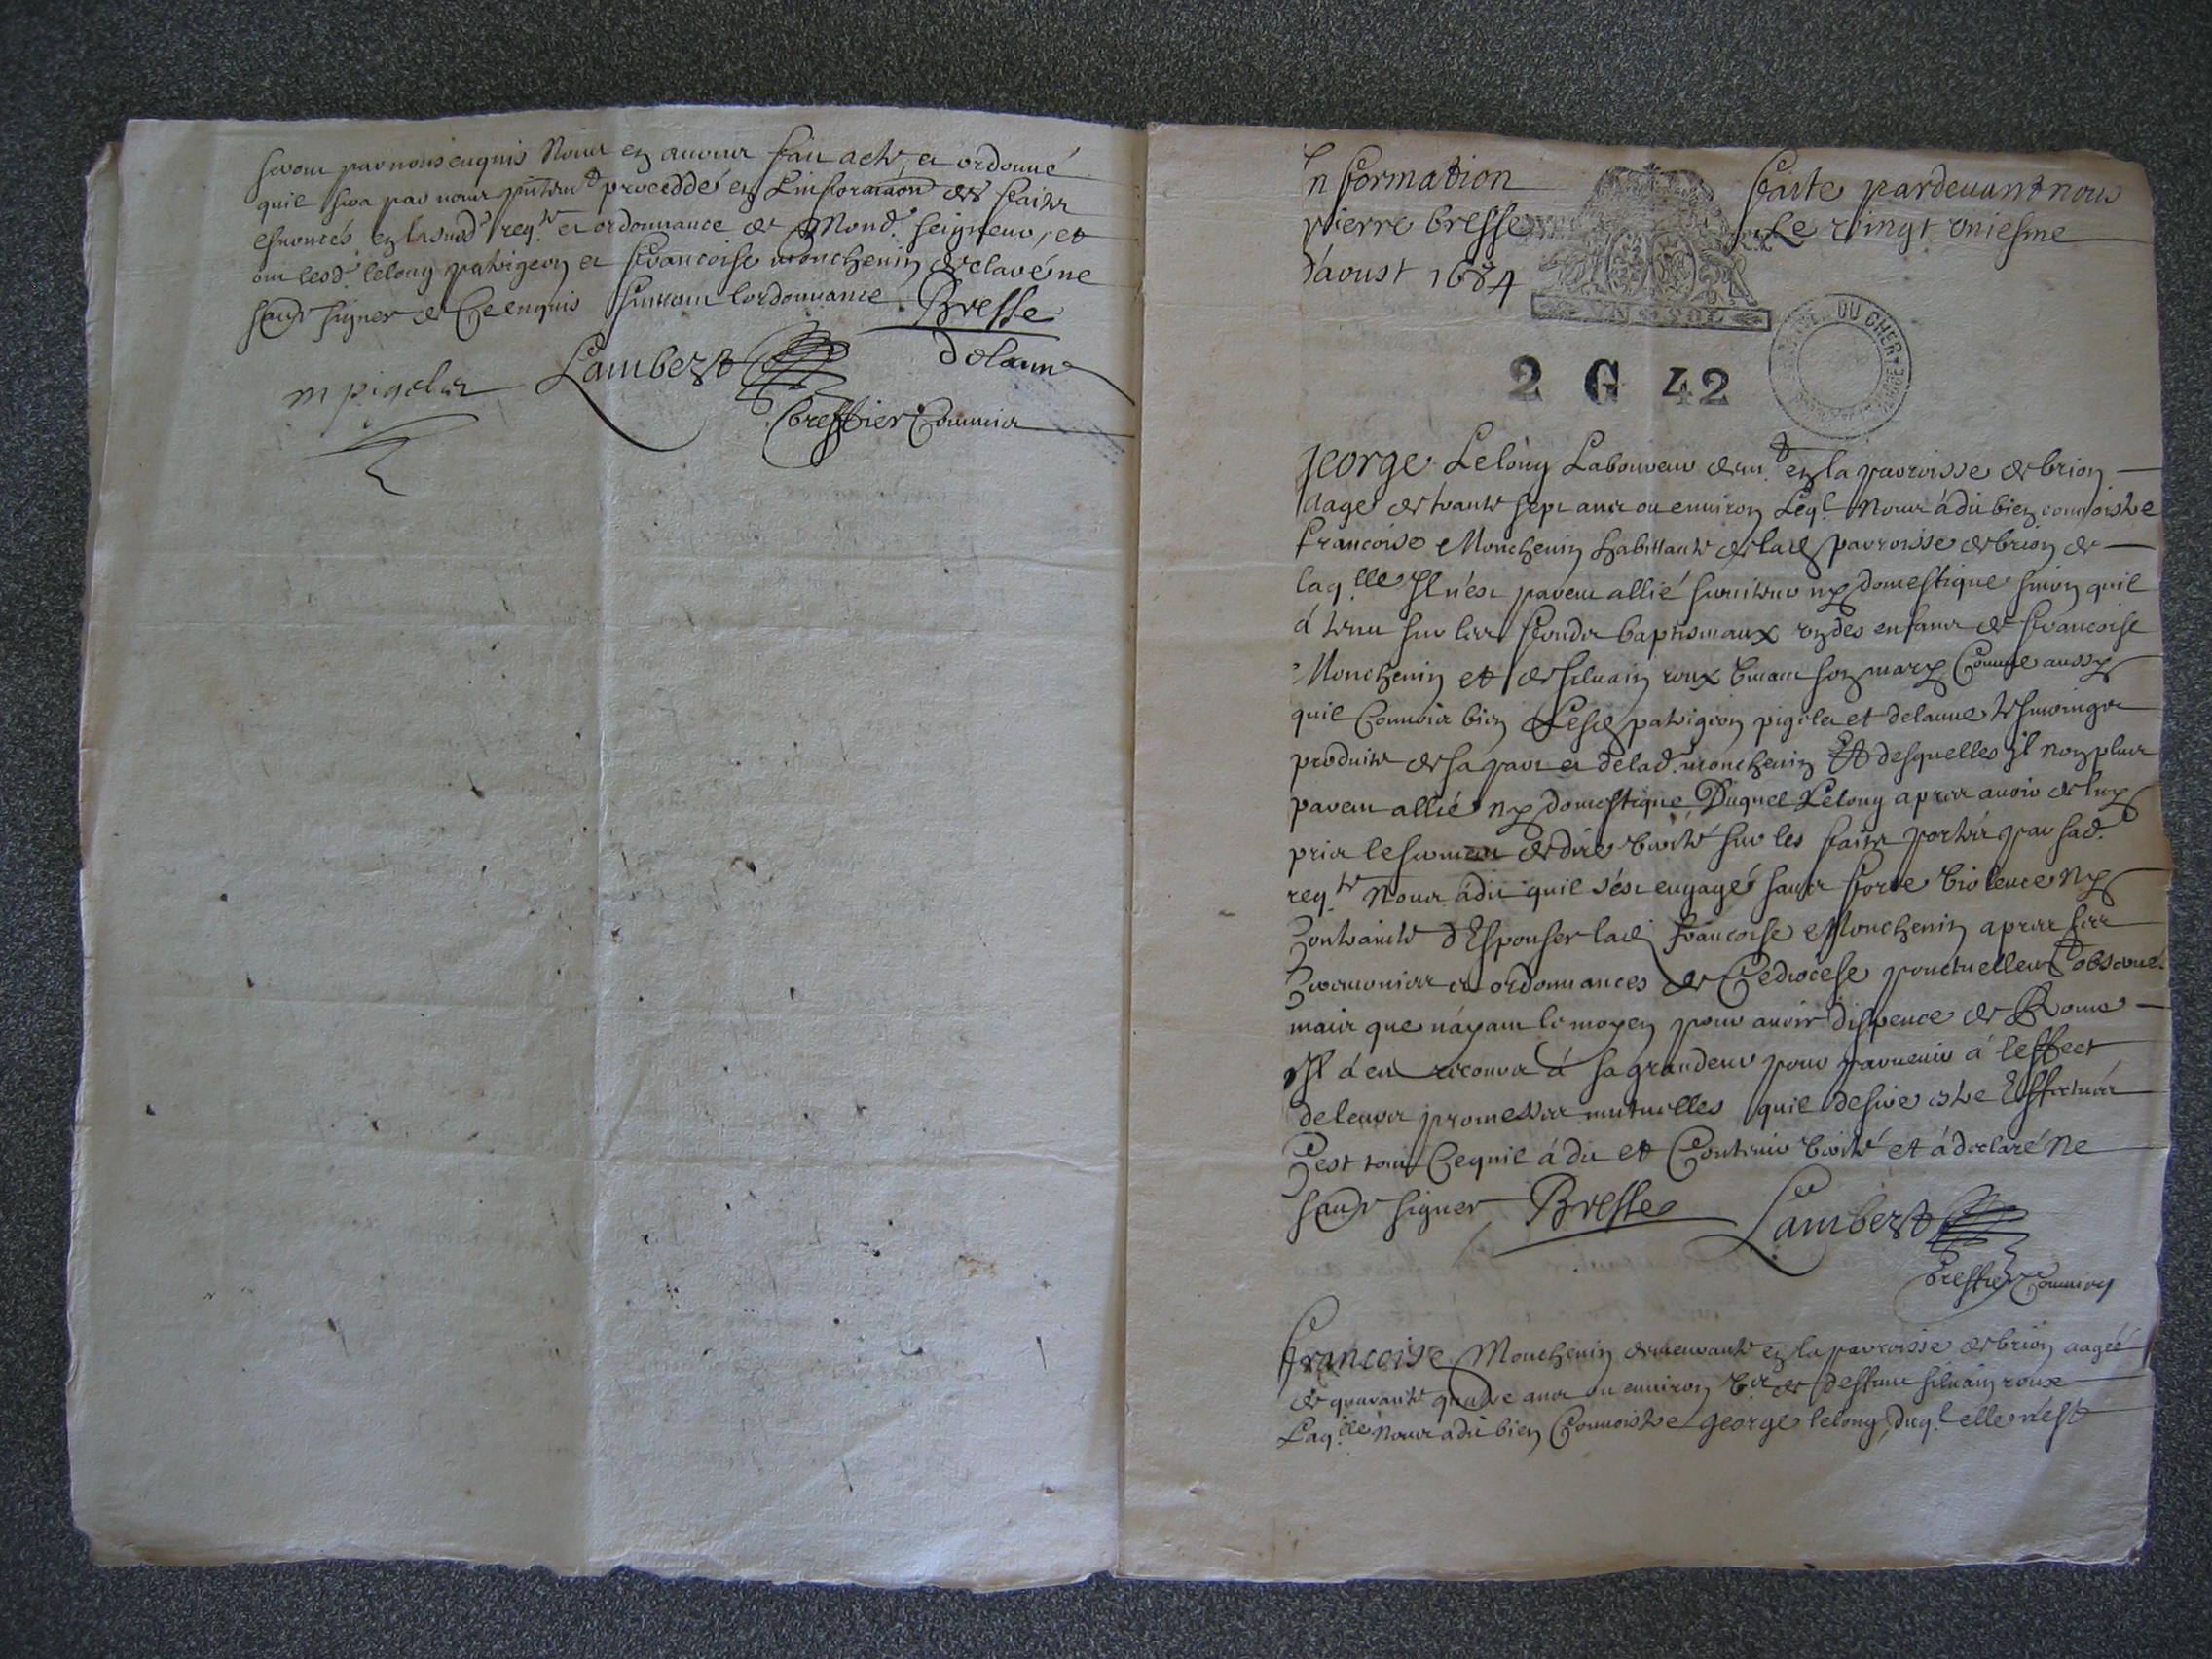 serom par nous enquis Nous en avons fait acte et ordonné
quil sera par nous pntemt procedde en Linformaon des faits
esnoncés en lasusd. reqte et ordonnance de Mond. seigneur, et
ont lesd. lelong patrigeon et francoise monchenin declaré ne
scavoir signer de ce enquis suivant lordonnance Bresse
m pigelet Lambert delaune
Greffier Commis
Information faite pardevant nous
pierre bresse Le vingt uniesme
d'aoust 1684
UN SOL
DU CHER
2 G 42
George Lelong Laboureur demt en la parroisse de brion
aagé de trante sept ans ou environ Leql Nous à dit bien connoistre
francoise Monchenin habittante de lad parroisse de brion de
laqlle Il n'est parent allié serviteur ny domestique sinon quil
à tenu sur les fonds baptismaux un des enfans de francoise
Monchenin et de silvain roux vivant son mary Comme aussy
quil Connoist bien Lesd patrigeon pigelet et delaune tesmoings
produits de sa part et de lad. monchenin Et desquelles il non plus
parent allié ny domestique Duquel Lelong apres avoir de luy
pris le serment de dire verité sur les faits portés par sad.
reqte Nous à dit quil s'est engagé sans force violence ny
Contrainte d'Espouser lad francoise Monchenin apres les
Ceremonies et ordonnances de Ce diocese ponctuellemt observées
mais que n'ayant le moyen pour avoir dispence de Rome
Il à eu recours à sa grandeur pour parvenir à leffect
de leurs promesses mutuelles quil desire estre Effectués
Cest tout Ce quil à dit et Contenir verité et à declaré ne
scavoir signer Bresse Lambert
Greffier Commis
Francoise Monchenin demeurante en la parroisse de brion aagée
de quarante quatre ans ou environ vve de deffunt silvain roux
Laqlle Nous a dit bien Connoistre george lelong, duql elle n'est